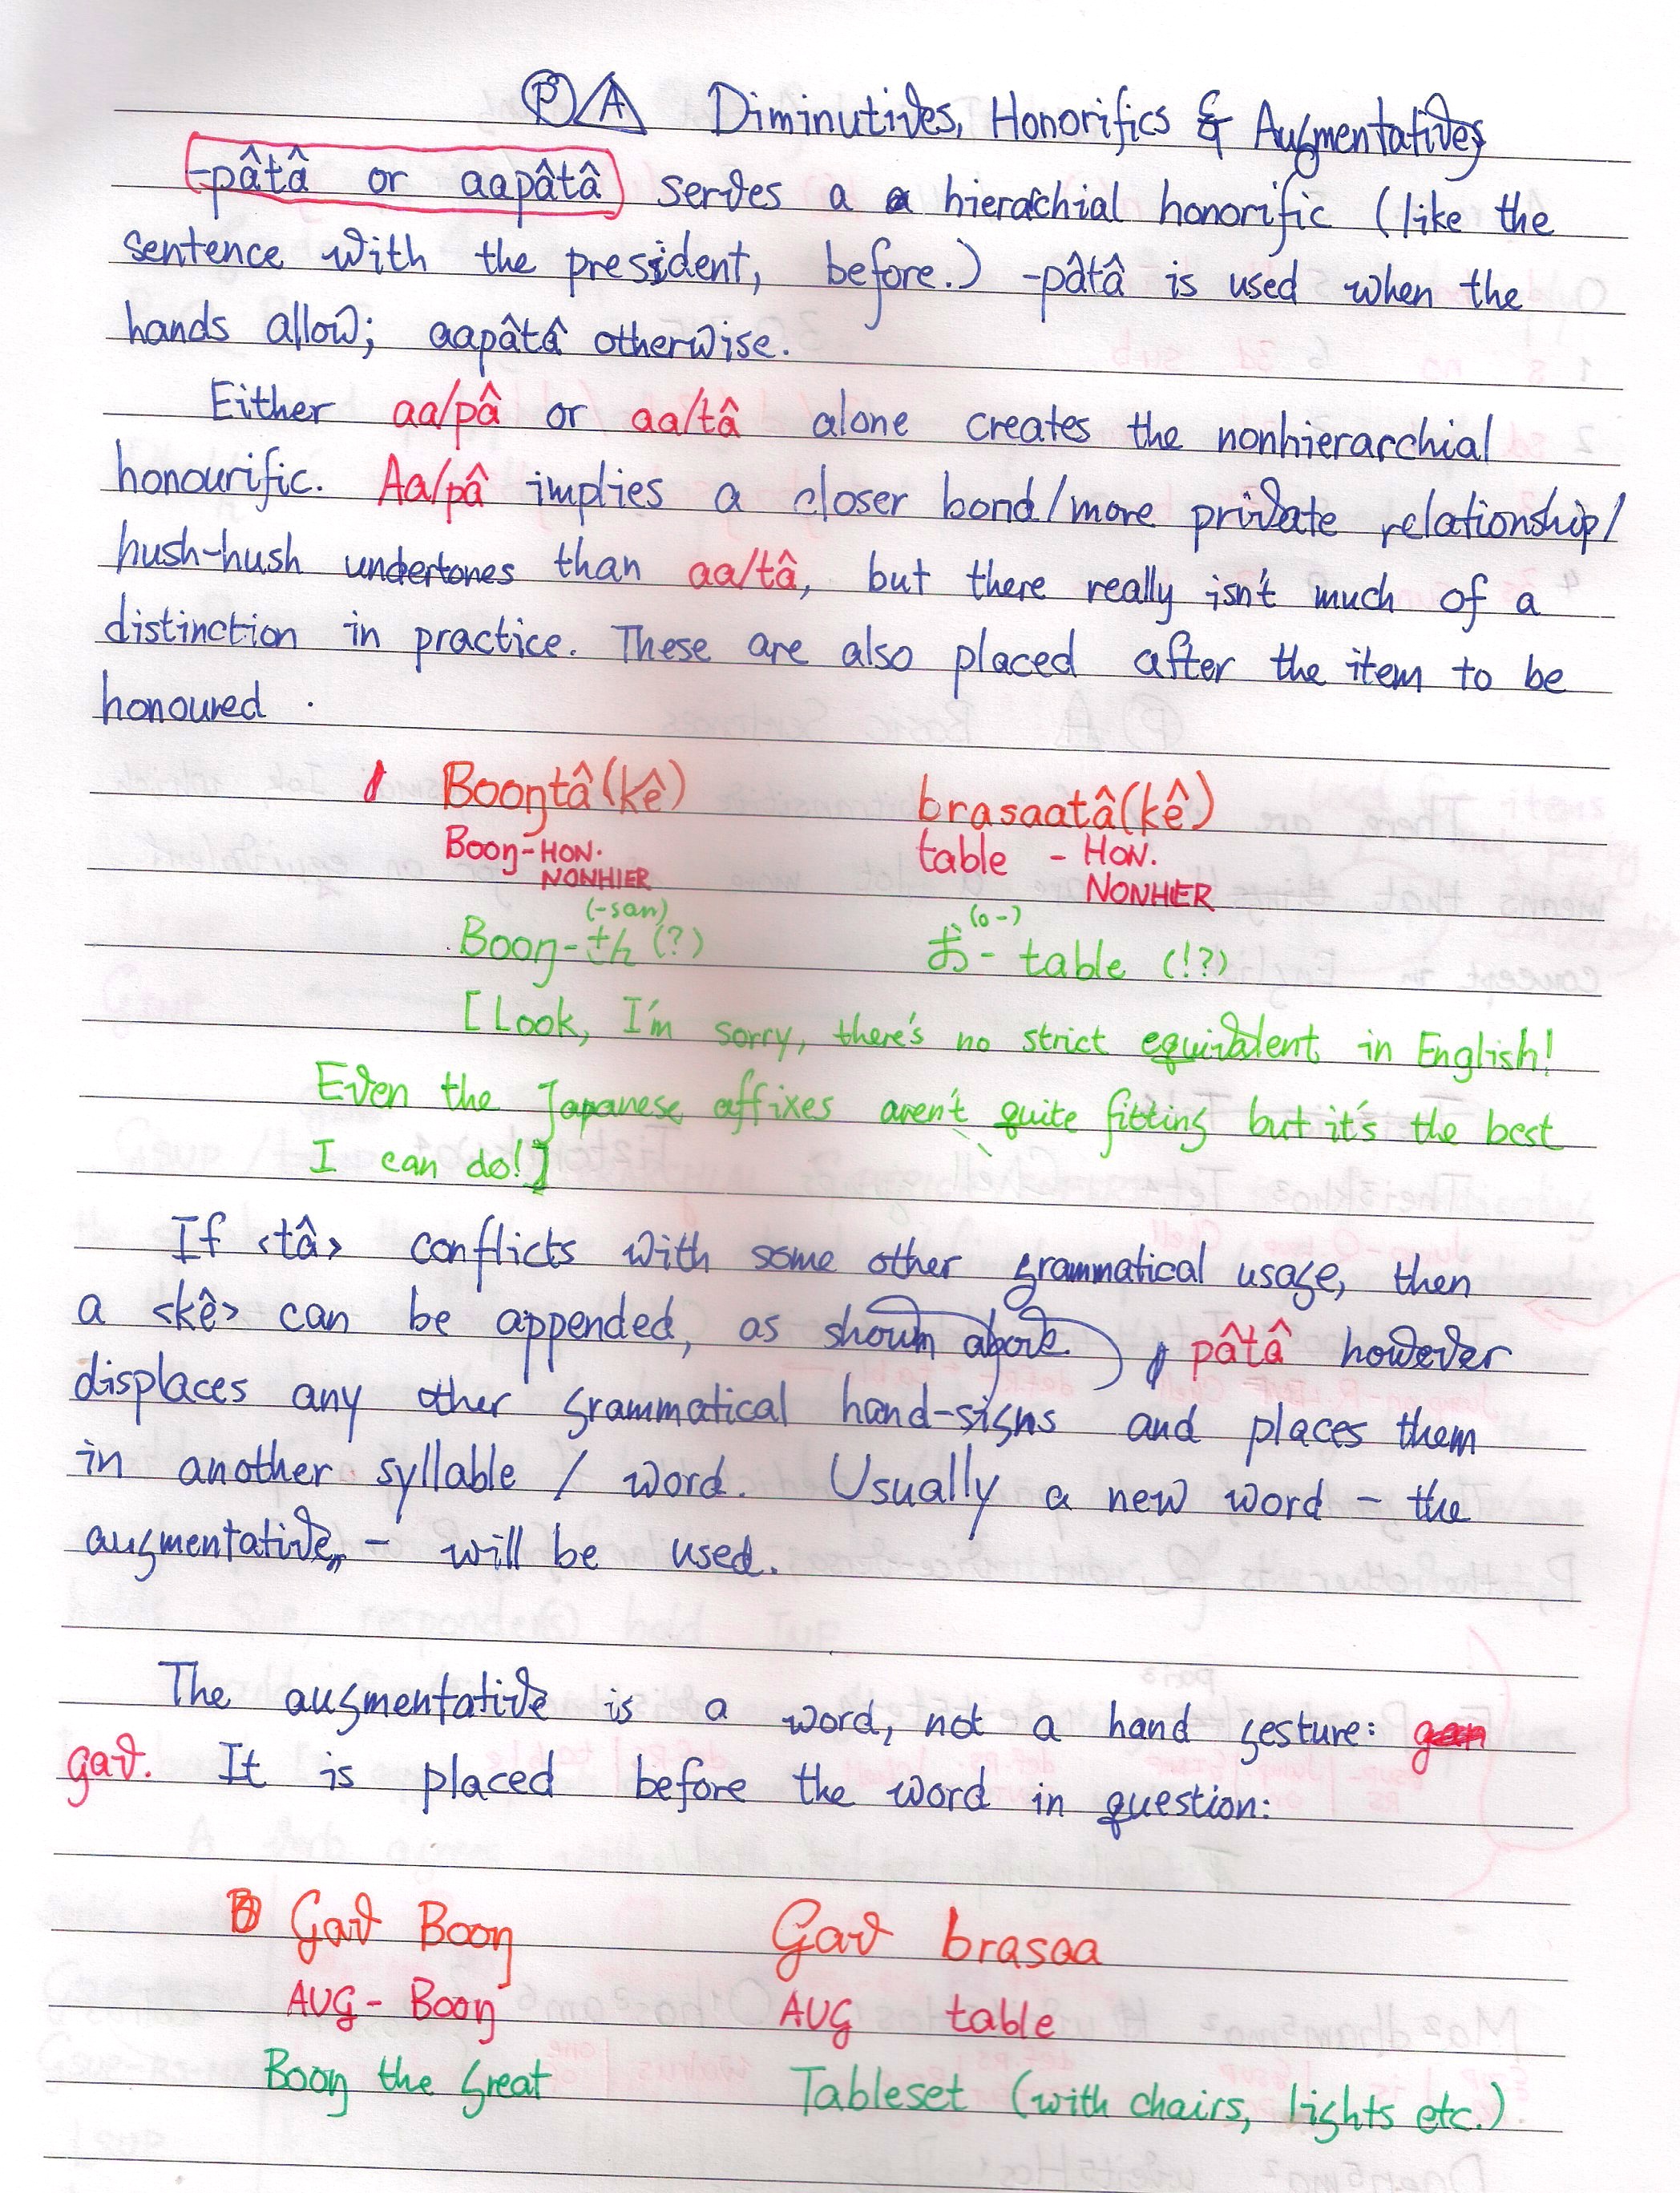 Ⓟ/A Diminutives, Honorifics & Augmentatives
-pâtâ or aapâtâ serves a a hierachial honorific (like the
sentence with the president, before.) -pâtâ is used when the
hands allow; aapâtâ otherwise.
Either aa/pâ or aa/tâ alone creates the nonhierarchial
honourific. Aa/pâ implies a closer bond/more private relationship/
hush-hush undertones than aa/tâ, but there really isn't much of a
distinction in practice. These are also placed after the item to be
honoured.
Booŋtâ(kê) brasaatâ(kê)
Booŋ-HON. table - HON.
NONHIER NONHER
(-san) (o-)
Booŋ-さん(?) お- table (!?)
[Look, I'm sorry, there's no strict equivalent in English!
Even the Japanese affixes aren't quite fitting but it's the best
I can do!]
If <tâ> conflicts with some other grammatical usage, then
a <kê> can be appended, as shown above. pâtâ however
displaces any other grammatical hand-signs and places them
in another syllable / word. Usually a new word - the
augmentative, - will be used.
The augmentative is a word, not a hand gesture:
gav. It is placed before the word in question:
Gav Booŋ Gav brasaa
AUG- Booŋ AUG table
Booŋ the Great Tableset (with chairs, lights etc.)